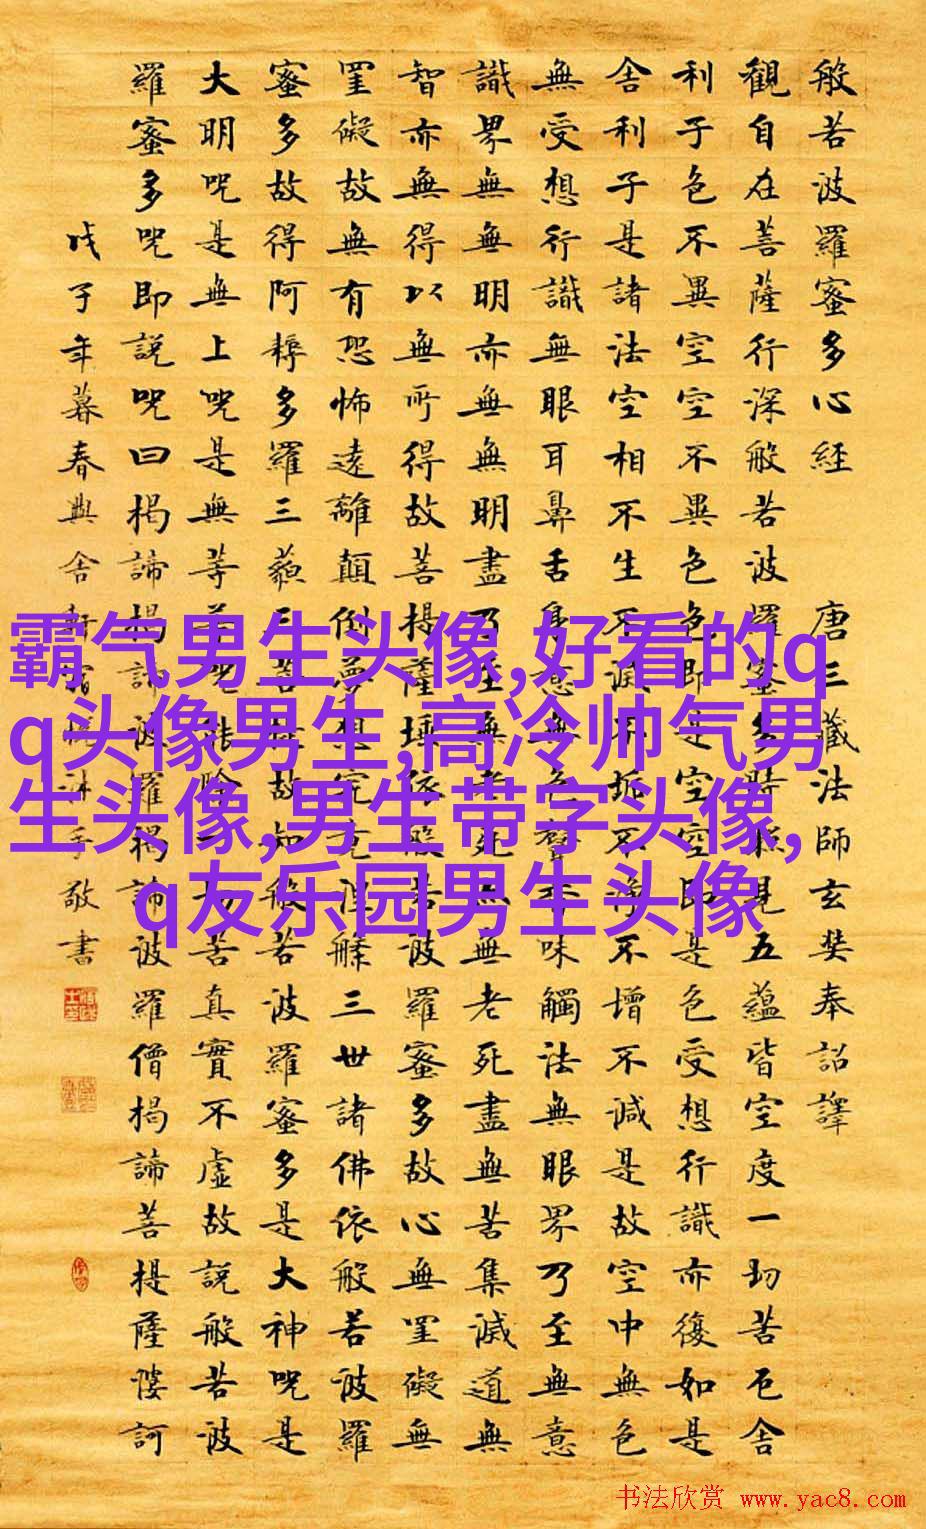 般若波羅蜜多心経 唐三藏法師玄奘奉詔譯
觀自在菩薩行深般若波羅蜜多時照見五蘊皆空度一切苦厄舍
利子色不異空空不異色色即是空空即是色受想行識亦復如是
舍利子是諸法空相不生不滅不垢不淨不增不減是故空中無色
無受想行識無眼耳鼻舌身意無色聲香味觸法無眼界乃至無意
識界無無明亦無無明盡乃至無老死亦無老死盡無苦集滅道無
智亦無得以無所得故菩提薩埵依般若波羅蜜多故心無罣礙無
罣礙故無有恐怖遠離顛倒夢想究竟涅槃三世諸佛依般若波羅
蜜多故得阿耨多羅三藐三菩提故知般若波羅蜜多是大神咒是
大明咒是無上咒是無等等咒能除一切苦真實不虛故說般若波
羅蜜多咒即說咒曰揭諦揭諦波羅揭諦波羅僧揭諦菩提薩婆訶
戊子年暮春典舍軒沐手敬書
霸气男生头像,好看的q
q头像男生,高冷帅气男
生头像,男生带字头像,
q友乐园男生头像
书法欣赏 www.yac8.com